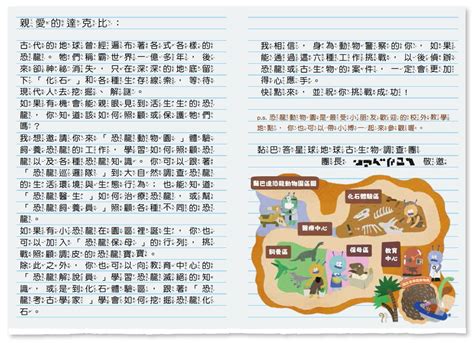 親愛的達克比：
古代的地球曾經遍布著各式各樣的恐龍。牠們稱霸世界一億多年，後來卻神祕消失，只在深深的地底留下「化石」和各種生存線索，等待現代人去挖掘、解謎。
如果有機會能親眼見到活生生的恐龍，你知道該如何照顧和保護牠們嗎？
我想邀請你來「恐龍動物園」體驗飼養恐龍的工作，學習如何照顧恐龍以及各種恐龍知識。你可以跟著「恐龍巡邏隊」到大自然調查恐龍的生活環境與生態行為；也可以當「恐龍醫生」如何治療恐龍，或當「恐龍飼養員」照顧恐龍的日常生活。
如果有小恐龍在園區裡誕生，你也可以加入「恐龍保母」的行列，挑戰照顧調皮的恐龍寶寶。
除此之外，你也可以向教育中心的「恐龍解說員」學習有趣的恐龍知識，或是到化石體驗區，跟著「恐龍考古學家」學會如何挖掘恐龍化石。
我相信，身為動物警察的你，如果能通過這六種工作挑戰，以後，倘若恐龍或古生物的案件，一定會更加得心應手！
快點來，並祝 你挑戰成功！
p.s. 恐龍動物園是最受小朋友歡迎的校外教學地點，你也可以帶小博士一起來參觀。
黏巴答星球地球訪問團
團長： 敬邀
黏巴達恐龍動物園區圖
化石體驗區
醫療中心
飼養區
保母區
教育
中心